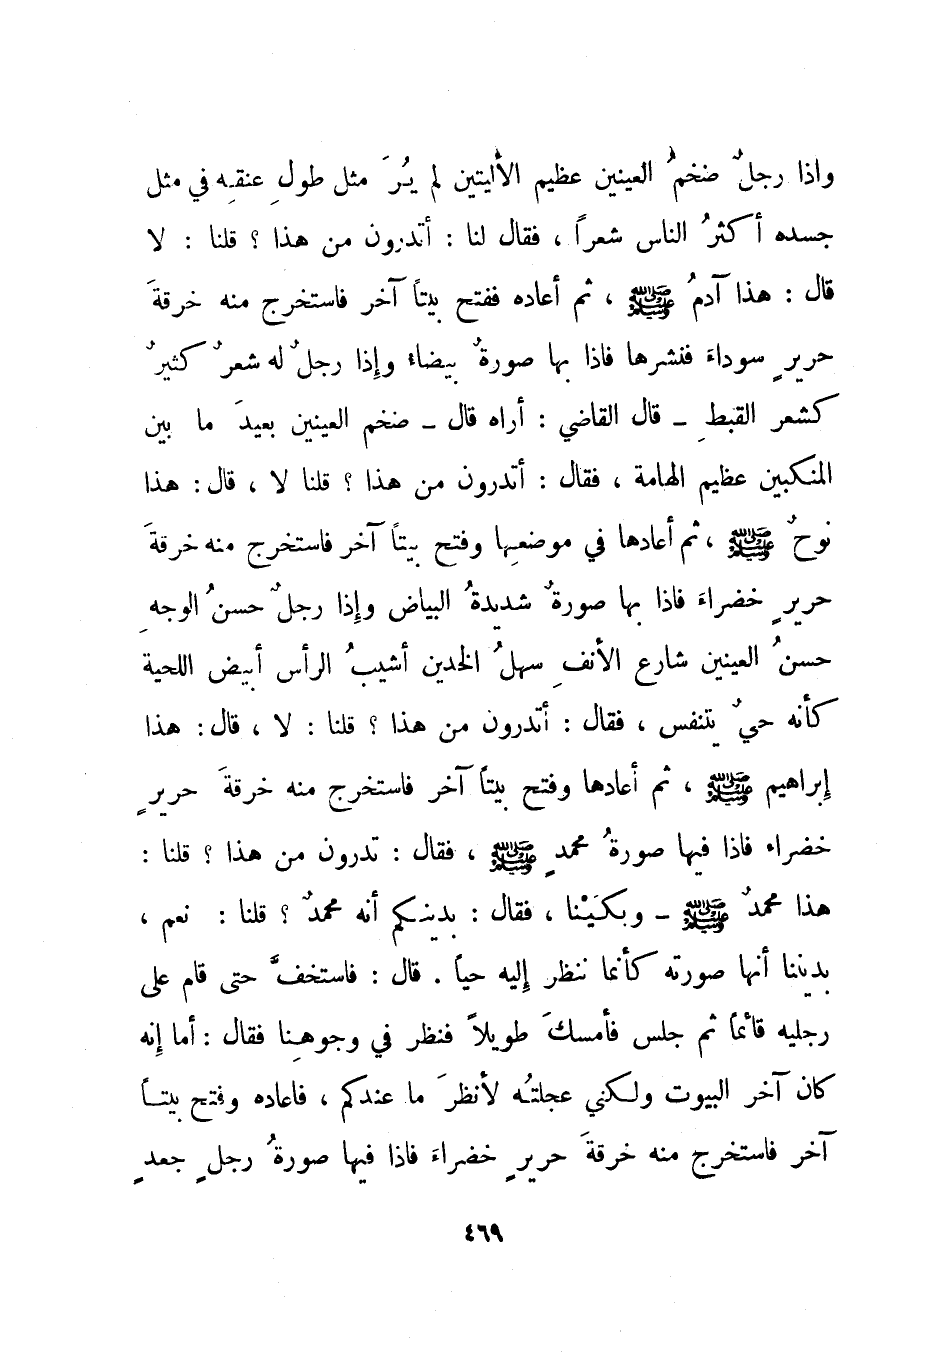 واذا رجلٌ ضخمُ العينين عظيم الأليتين لم يُرَ مثل طولِ عنقه في مثل
جسده أكثرُ الناس شعراً ، فقال لنا : أتدرون من هذا ؟ قلنا : لا
قال : هذا آدمُ ﷺ ، ثم أعاده ففتح بيتاً آخر فاستخرج منه خرقةَ
حريرٍ سوداءَ فنشرها فاذا بها صورةٌ بيضاء وإذا رجلٌ له شعرٌ كثيرٌ
كشعر القبطِ ـ قال القاضي : أراه قال ـ ضخم العينين بعيدَ ما بين
المنكبين عظيم الهامة ، فقال : أتدرون من هذا ؟ قلنا لا ، قال : هذا
نوحٌ ﷺ ، ثم أعادها في موضعها وفتح بيتاً آخر فاستخرج منه خرقةَ
حريرٍ خضراءَ فاذا بها صورةٌ شديدةُ البياض وإذا رجلٌ حسنُ الوجهِ
حسنُ العينين شارع الأنفِ سهلُ الخدين أشيبُ الرأس أبيض اللحية
كأنه حيٌ يتنفس ، فقال : أتدرون من هذا ؟ قلنا : لا ، قال : هذا
إبراهيم ﷺ ، ثم أعادها وفتح بيتاً آخر فاستخرج منه خرقةَ حريرٍ
خضراء فاذا فيها صورةُ محمدٍ ﷺ ، فقال : تدرون من هذا ؟ قلنا :
هذا محمدٌ ﷺ ـ وبكَيْنا ، فقال : بدينكم أنه محمدٌ ؟ قلنا : نعم ،
بديننا أنها صورته كأنما ننظر إليه حياً . قال : فاستخفَّ حتى قام على
رجليه قائماً ثم جلس فأمسكَ طويلاً فنظر في وجوهنا فقال : أما إنه
كان آخر البيوت ولكني عجلتُه لأنظرَ ما عندكم ، فاعاده وفتح بيتاً
آخر فاستخرج منه خرقةَ حريرٍ خضراءَ فاذا فيها صورةُ رجلٍ جعدٍ
٤٦٩